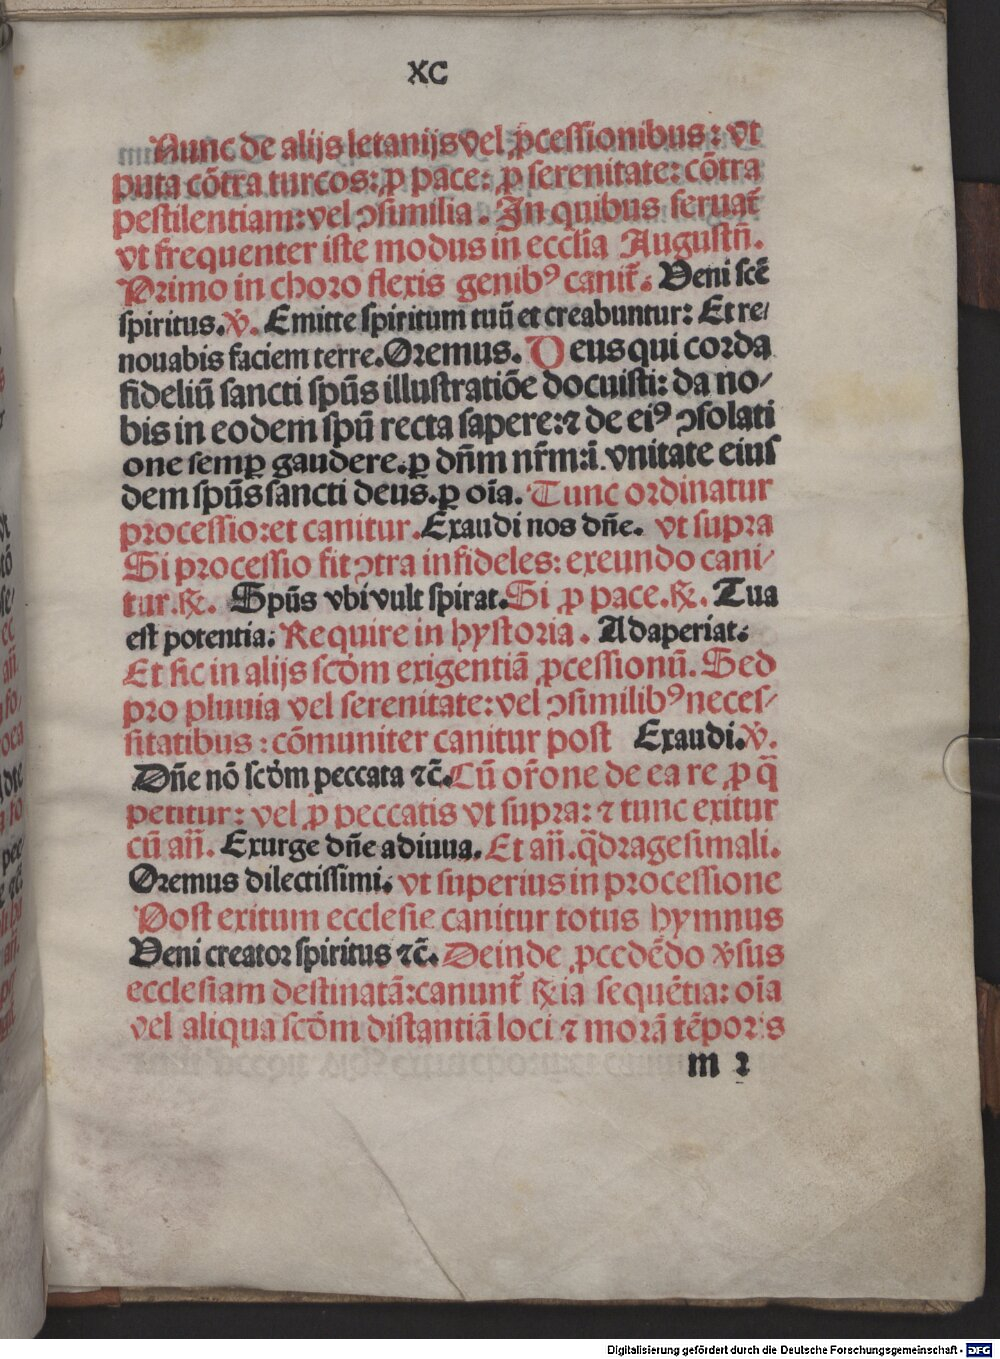 XC
Nunc de alijs letanijs vel ꝓcessionibus: vt
puta cōtra turcos: ꝓ pace: ꝓ serenitate: cōtra
pestilentiam: vel ↄsimilia. In quibus seruat᷑
vt frequenter iste modus in ecclīa Augustn̄.
Primo in choro flexis genibꝰ canit᷑: Veni scē
spiritus. ℣. Emitte spiritum tuū et creabuntur: Et re/
nouabis faciem terre. Oremus. Deus qui corda
fideliū sancti spūs illustratiōe docuisti: da no/
bis in eodem spū recta sapere: ⁊ de eiꝰ ↄsolati
one semꝑ gaudere. ꝑ dn̄m nr̄m: ī vnitate eius
dem spūs sancti deus. ꝑ oīa. Tunc ordinatur
processio: et canitur. Exaudi nos dn̄e. vt supra
Si processio fit ↄtra infideles: exeundo cani/
tur. ℟. Spūs vbi vult spirat. Si ꝓ pace. ℟. Tua
est potentia: Require in hystoria. Adaperiat:
Et sic in alijs scd̄m exigentiā ꝓcessionū. Sed
pro pluuia vel serenitate: vel ↄsimilibꝰ neces/
sitatibus: cōmuniter canitur post Exaudi. ℣.
Dn̄e nō scd̄m peccata ⁊c̄. Cū or̄one de ea re ꝓ q̄
petitur: vel ꝓ peccatis vt supra: ⁊ tunc exitur
cū an̄. Exurge dn̄e adiuua. Et an̄. q̄dragesimali.
Oremus dilectissimi. vt superius in processione
Post exitum ecclesie canitur totus hymnus
Veni creator spiritus ⁊c̄. Deinde ꝓcedēdo v̓sus
ecclesiam destinatā: canunt᷑ ℟ia sequētia: oīa
vel aliqua scd̄m distantiā loci ⁊ morā tēporis
m 2
Digitalisierung gefördert durch die Deutsche Forschungsgemeinschaft - DFG